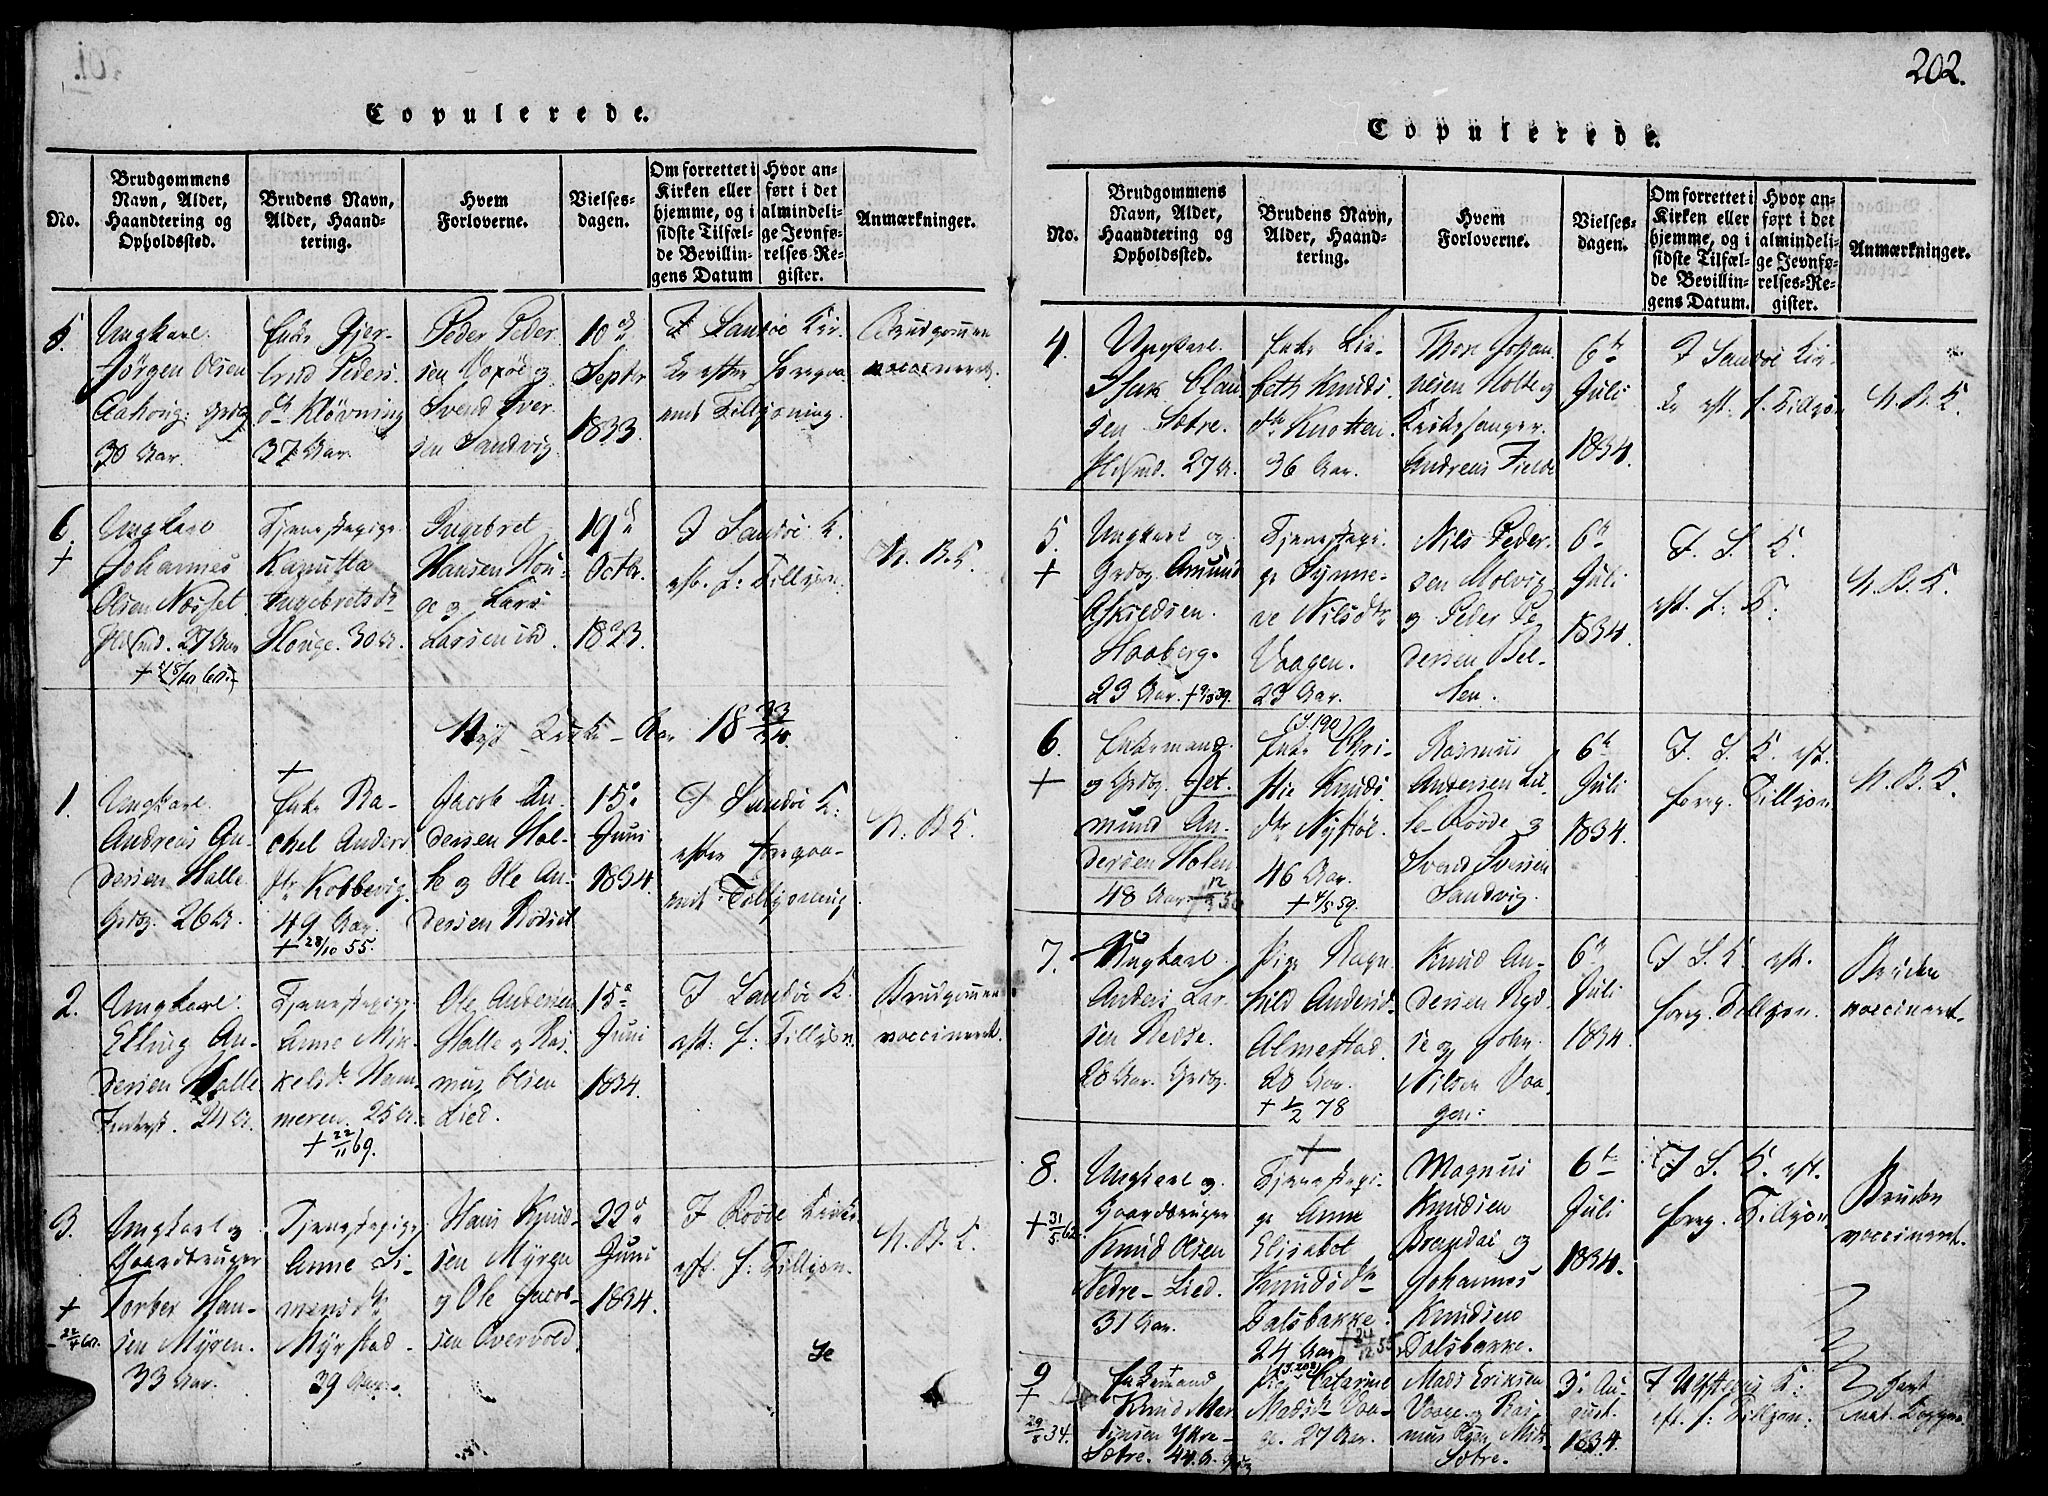 202.
Copulerede.
No.
Brudgommens
Navn, Alder,
Haandtering og
Opholdssted.
Brudens Navn,
Alder, Haand-
tering.
Hvem
Forloverne.
Vielses-
dagen.
Om forrettet i
Kirken eller
hjemme, og i
sidste Tilfæl-
de Bevillin-
gens Datum
Hvor an-
ført i det
almindeli-
ge Jevnfø-
relses-Re-
gister.
Anmærkninger.
5.
Ungkarl
Jørgen Olsen
30 Aar.
Enke Gjer-
trud Peders
dr Kløvning
37 Aar.
Peder Peder
sen Voxøe og
Svend Iver
sen Sandvig
10de
Septbr
1833.
I Sandøe Kir
ke efter foregaa
end Tillysning.
Brudgommen
vaccineret.
6.
+
Ungkarl
Johannes
Olsen Næsset
Huusmd. 27 Aar
Tjenestepige
Karnutta
Ingebretsdr
Houge. 30 A.
Ingebret
Hansen Hou-
ge og Lars
Larsen ibd.
19de
Octbr.
1833.
I Sandøe K.
eft. f: Tillysn.
N. B. K.
Nyt Kirke-Aar 18 33/34.
1.
Ungkarl
Andreas An-
dersen Halle
Grdbg. 26 A.
+
Enke Ra-
chel Anders
dr Kobbevig
49 Aar.
+ 28/10 55.
Jacob An-
dersen Hol-
te og Ole An-
dersen Rødset
15de
Juni
1834.
I Sandøe K:
efter foregaa-
end Tillysning
N. B. K.
2.
Ungkarl
Elling An-
dersen Halle
24 A.
Tjenestepige
Anne Mik-
kelsdr Ham-
meren. 25 A.
+ 22/11 69.
Ole Andersen
Halle og Ras-
mus Olsen
Lied.
15de
Juni
1834.
I Sandøe K.
eft: f: Tillysn.
Brudgommen
vaccineret.
3.
+
Ungkarl og
Gaardbruger
Torber Han-
sen Myren.
33 Aar.
Tjenestepige
Anne Si-
mensdr
Myrstad
39 Aar.
Hans Knud-
sen Myren
og Ole Jacob-
sen Overvold
22de
Juni
1834.
I Røvde Kirke
eft. f: Tillysn.
N. B. K.
Copulerede.
No.
Brudgommens
Navn, Alder,
Haandtering og
Opholdssted.
Brudens Navn,
Alder, Haand-
tering.
Hvem
Forloverne.
Vielses-
dagen.
Om forrettet i
Kirken eller
hjemme, og i
sidste Tilfæl-
de Bevillin-
gens Datum.
Hvor an-
ført i det
almindeli-
ge Jevnfø-
relses-Re-
gister.
Anmærkninger.
4.
Ungkarl
Isak Clau
sen Sætre.
Huusmd. 27 A.
Enke Lis-
beth Knuds
dtr Knotten.
36 Aar.
Thore Johan
nesen Holte og
Kirkesanger
Andreas Fielde
6te
Juli
1834.
I Sandøe Kir
ke eft. f. Tillysn
N. B. K.
5.
+
Ungkarl og
Grdbg. Amund
Askildsen
Haaberg.
23 Aar.
Tjenestepi-
ge Synne-
ve Nilsdtr
Vaagen.
23 Aar.
Nils Peder-
sen Molvig
og Peder Pe-
dersen Bel-
sen.
6te
Juli
1834.
I. S. K.
eft. f: T:
N. B. K.
6.
+
Enkemand
og Grdbg. Jet-
mund An-
dersen Holen
48 Aar
(S. 190)
Enke Chri-
stie Knuds
dtr Nystøl.
46 Aar.
+ 4/5 59.
Rasmus
Andersen Lil-
le-Røvde og
Svend Iversen
Sandvig.
6te
Juli
1834.
I. S. K. eft.
foreg. Tillysn.
N. B. K.
7.
Ungkarl
Anders Lar
sen Redse.
28 Aar. Grdbg.
Pige Ragn
hild Andersd.
Almestad.
28 Aar.
+ 1/2 78
Knud An-
dersen Ryd-
se og John
Nilsen Vaa-
gen:
6te
Juli
1834.
I S. K. eft.
foreg. Tillysn.
Bruden
vaccineret.
8.
+ 31/5 62.
Ungkarl og
Gaardbruger
Knud Olsen
Nedre-Lied.
31 Aar.
+
Tjenestepi-
ge Anne
Elisabet
Knudsdtr
Dalsbakke.
24 Aar + 24/12 55.
Magnus
Knudsen
Brandal og
Johannes
Knudsen
Dalsbakke.
6te
Juli
1834.
I S. K. eft.
foreg. Tillysn.
Bruden
vaccineret.
9
+
29/8 34.
Enkemand
Knud Mar
tinsen Ytre-
Sætre. 44 A. Grdbg
Pige Catarine
Madsdr Vaa-
ge. 27 Aar.
Mads Eriksen
Vaage og Ras
mus Olsen Mids-
Sætre.
3de Au-
gust.
1834.
eft. f: Tillysn:
havt
nat. Kopper